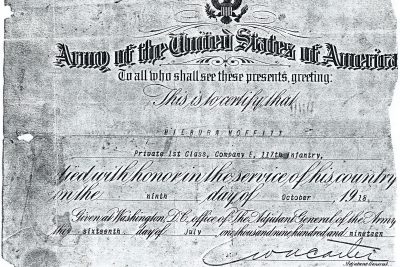 Army of the United States of America
To all who shall see these presents, greeting:
This is to certify that
WILBURN MOFFITT
Private 1st Class, Company E, 117th Infantry,
died with honor in the service of his country
on the ninth day of October 1918.
Given at Washington, D.C., office of The Adjutant General of the Army
this sixteenth day of July one thousand nine hundred and nineteen
Adjutant General.